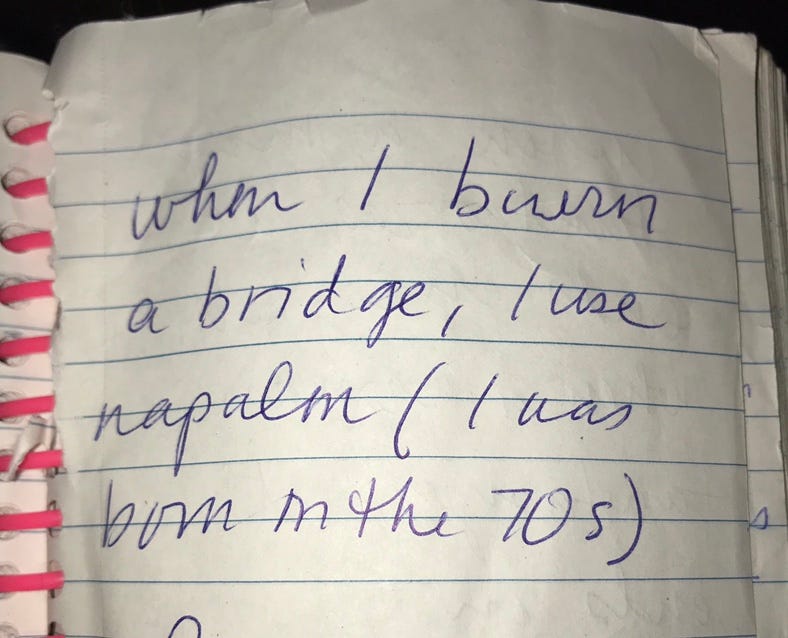 when I burn
a bridge, I use
napalm (I was
born in the 70s)